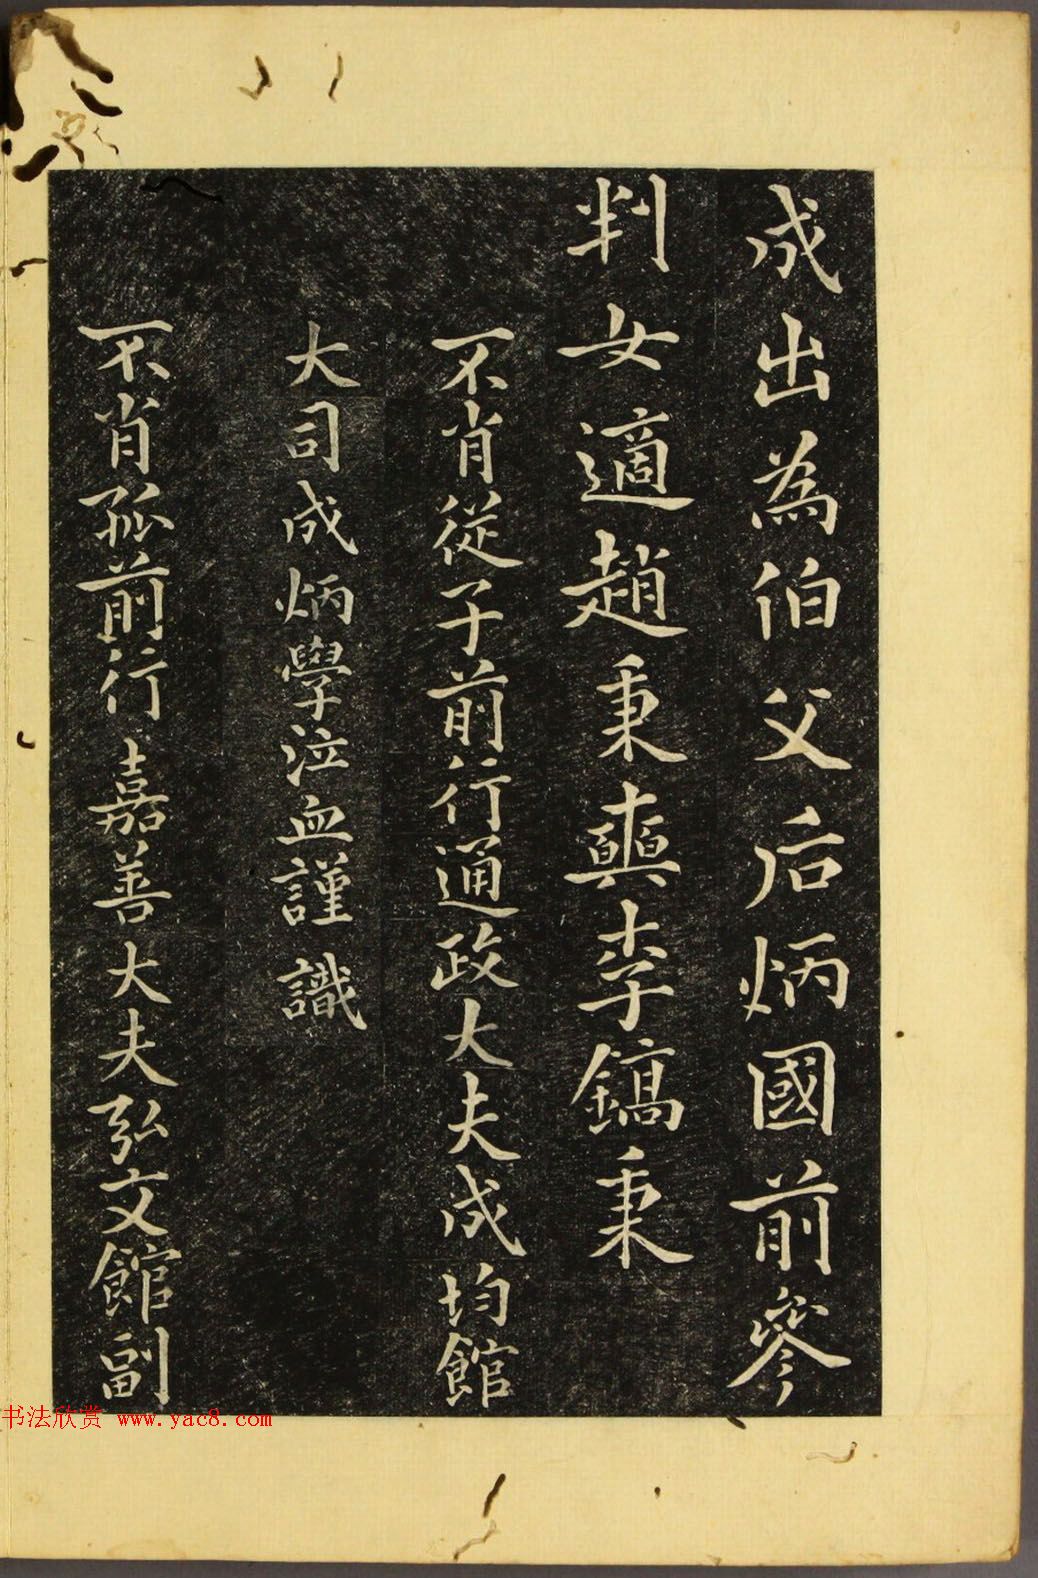 成出為伯父后炳國前參
判女適趙秉奭李鎬秉
不肖從子前行通政大夫成均館
大司成炳學泣血謹識
不肖孤前行嘉善大夫弘文館副
书法欣赏 www.yac8.com